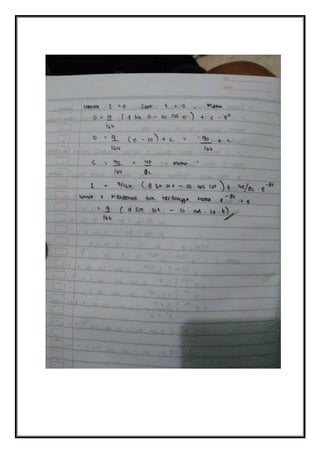 untuk I = 0 saat t = 0 , Maka
0 = 9/164 ( 8 sin 0 - 10 cos 0 ) + C . e⁰
0 = 9/164 ( 0 - 10 ) + C = - 90/164 + C
C = 90/164 = 45/82 . Maka
I = 9/164 ( 8 sin 10t - 10 cos 10t ) + 45/82 . e^-8t
untuk t mendekati tak terhingga maka e^-8t → 0
= 9/164 ( 8 sin 10t - 10 cos 10 t )